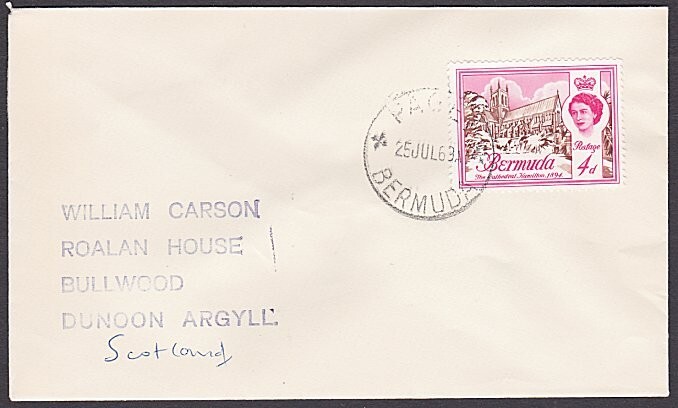 PAG
25JUL63
BERMUDA
Bermuda
Postage
4d
The Cathedral, Hamilton, 1894
WILLIAM CARSON
ROALAN HOUSE
BULLWOOD
DUNOON ARGYLL.
Scotland